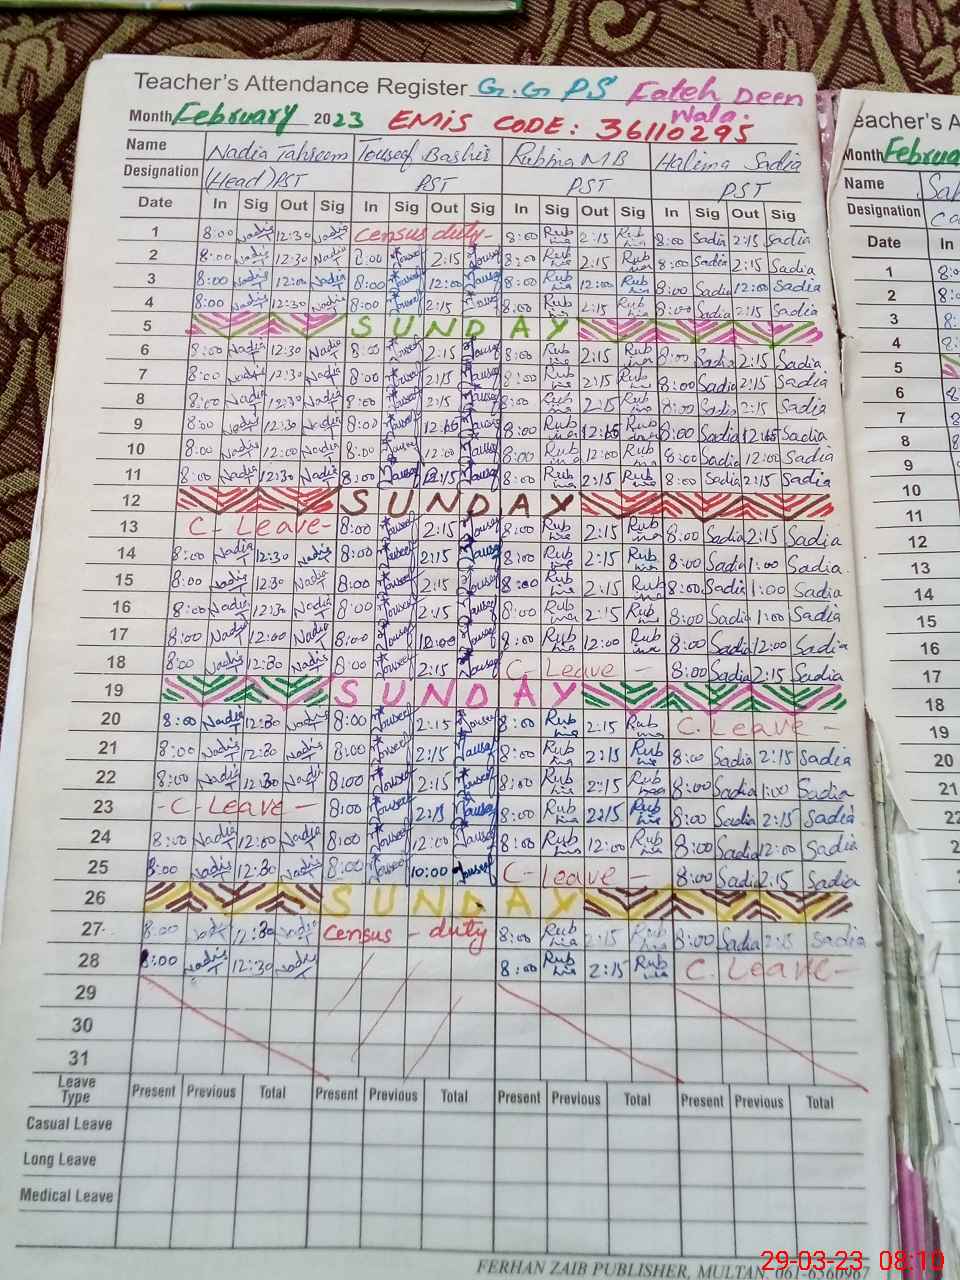 Teacher's Attendance Register G.G PS Fateh Deen
Wala.
Month February 2023 EMIS CODE: 36110295
Name Nadia Tahseem Touseef Bashir Rubina MB Halima Sadia
Designation (Head) PST PST PST PST
Date In Sig Out Sig In Sig Out Sig In Sig Out Sig In Sig Out Sig
1 8:00 Nadia 12:30 Nadia Census duty- 8:00 Rubina 2:15 Rubina 8:00 Sadia 2:15 Sadia
2 8:00 Nadia 12:30 Nadia 8:00 Touseef 2:15 Touseef 8:00 Rubina 2:15 Rubina 8:00 Sadia 2:15 Sadia
3 8:00 Nadia 12:00 Nadia 8:00 Touseef 12:00 Touseef 8:00 Rubina 12:00 Rubina 8:00 Sadia 12:00 Sadia
4 8:00 Nadia 12:30 Nadia 8:00 Touseef 2:15 Touseef 8:00 Rubina 2:15 Rubina 8:00 Sadia 2:15 Sadia
5 SUNDAY
6 8:00 Nadia 12:30 Nadia 8:00 Touseef 2:15 Touseef 8:00 Rubina 2:15 Rubina 8:00 Sadia 2:15 Sadia
7 8:00 Nadia 12:30 Nadia 8:00 Touseef 2:15 Touseef 8:00 Rubina 2:15 Rubina 8:00 Sadia 2:15 Sadia
8 8:00 Nadia 12:30 Nadia 8:00 Touseef 2:15 Touseef 8:00 Rubina 2:15 Rubina 8:00 Sadia 2:15 Sadia
9 8:00 Nadia 12:30 Nadia 8:00 Touseef Touseef 8:00 Rubina Rubina 8:00 Sadia Sadia
10 8:00 Nadia 12:00 Nadia 8:00 Touseef 12:00 Touseef 8:00 Rubina 12:00 Rubina 8:00 Sadia 12:00 Sadia
11 8:00 Nadia 12:30 Nadia 8:00 Touseef Touseef 8:00 Rubina 2:15 Rubina 8:00 Sadia 2:15 Sadia
12 SUNDAY
13 C- Leave- 8:00 Touseef 2:15 Touseef 8:00 Rubina 2:15 Rubina 8:00 Sadia 2:15 Sadia
14 8:00 Nadia 12:30 Nadia 8:00 Touseef 2:15 Touseef 8:00 Rubina 2:15 Rubina 8:00 Sadia 1:00 Sadia.
15 8:00 Nadia 12:30 Nadia 8:00 Touseef 2:15 Touseef 8:00 Rubina 2:15 Rubina 8:00 Sadia 1:00 Sadia
16 8:00 Nadia 12:30 Nadia 8:00 Touseef 2:15 Touseef 8:00 Rubina 2:15 Rubina 8:00 Sadia 1:00 Sadia
17 8:00 Nadia 12:00 Nadia 8:00 Touseef 12:00 Touseef 8:00 Rubina 12:00 Rubina 8:00 Sadia 12:00 Sadia
18 8:00 Nadia 12:30 Nadia 8:00 Touseef 2:15 Touseef C- Leave - 8:00 Sadia 2:15 Sadia
19 SUNDAY
20 8:00 Nadia 12:30 Nadia 8:00 Touseef 2:15 Touseef 8:00 Rubina 2:15 Rubina C. Leave -
21 8:00 Nadia 12:30 Nadia 8:00 Touseef 2:15 Touseef 8:00 Rubina 2:15 Rubina 8:00 Sadia 2:15 Sadia
22 8:00 Nadia 12:30 Nadia 8:00 Touseef 2:15 Touseef 8:00 Rubina 2:15 Rubina 8:00 Sadia 1:00 Sadia
23 -C- Leave - 8:00 Touseef 2:15 Touseef 8:00 Rubina 2:15 Rubina 8:00 Sadia 2:15 Sadia
24 8:00 Nadia 12:00 Nadia 8:00 Touseef 12:00 Touseef 8:00 Rubina 12:00 Rubina 8:00 Sadia 12:00 Sadia
25 8:00 Nadia 12:30 Nadia 8:00 Touseef 10:00 Touseef C- Leave - 8:00 Sadia 2:15 Sadia
26 SUNDAY
27 8:00 Nadia 12:30 Nadia Census - duty 8:00 Rubina 2:15 Rubina 8:00 Sadia 2:15 Sadia
28 8:00 Nadia 12:30 Nadia 8:00 Rubina 2:15 Rubina C. Leave-
29
30
31
Leave Type Present Previous Total Present Previous Total Present Previous Total Present Previous Total
Casual Leave
Long Leave
Medical Leave
FERHAN ZAIB PUBLISHER, MULTAN
29-03-23 08:10
eacher's A
Month Februa
Name
Designation
Date In
1 8:0
2 8:0
3 8:
4
5
6
7
8
9
10
11
12
13
14
15
16
17
18
19
20
21
22
23
24
25
26
27
28